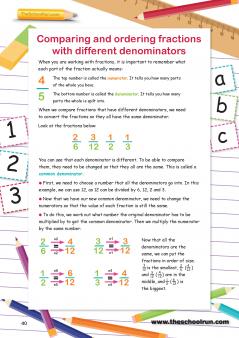 TheSchoolRun.com
Comparing and ordering fractions
with different denominators
When you are working with fractions, it is important to remember what
each part of the fraction actually means:
4
The top number is called the numerator. It tells you how many parts
of the whole you have.
5
The bottom number is called the denominator. It tells you how many
parts the whole is split into.
When we compare fractions that have different denominators, we need
to convert the fractions so they all have the same denominator.
Look at the fractions below:
2 3 1 1
6 12 2 3
You can see that each denominator is different. To be able to compare
them, they need to be changed so that they all are the same. This is called a
common denominator.
First, we need to choose a number that all the denominators go into. In this
example, we can use 12, as 12 can be divided by 6, 12, 2 and 3.
Now that we have our new common denominator, we need to change the
numerators so that the value of each fraction is still the same.
To do this, we work out what number the original denominator has to be
multiplied by to get the common denominator. Then we multiply the numerator
by the same number:
2 = 4 3 = 3
6 12 12 12
1 = 6 1 = 4
2 12 3 12
Now that all the
denominators are the
same, we can put the
fractions in order of size:
is the smallest,
and are in the
middle, and is
the biggest.
1
2
3
a
b
c
40
www.theschoolrun.com